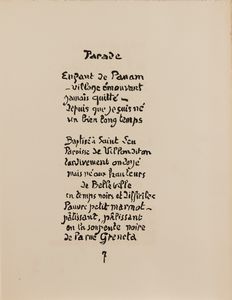 Parade
Enfant de Panam
_ village émouvant
jamais quitté _
depuis que je suis né
un bien long temps
Baptisé à Saint Leu
Paroisse de Villemditon
tardivement ondoyé
mais né aux hauteurs
de Belleville
en temps noirs et difficiles
Pauvre petit marmot _
pâtissant, pâlissant
en la soupente noire
de la rue Greneta
7